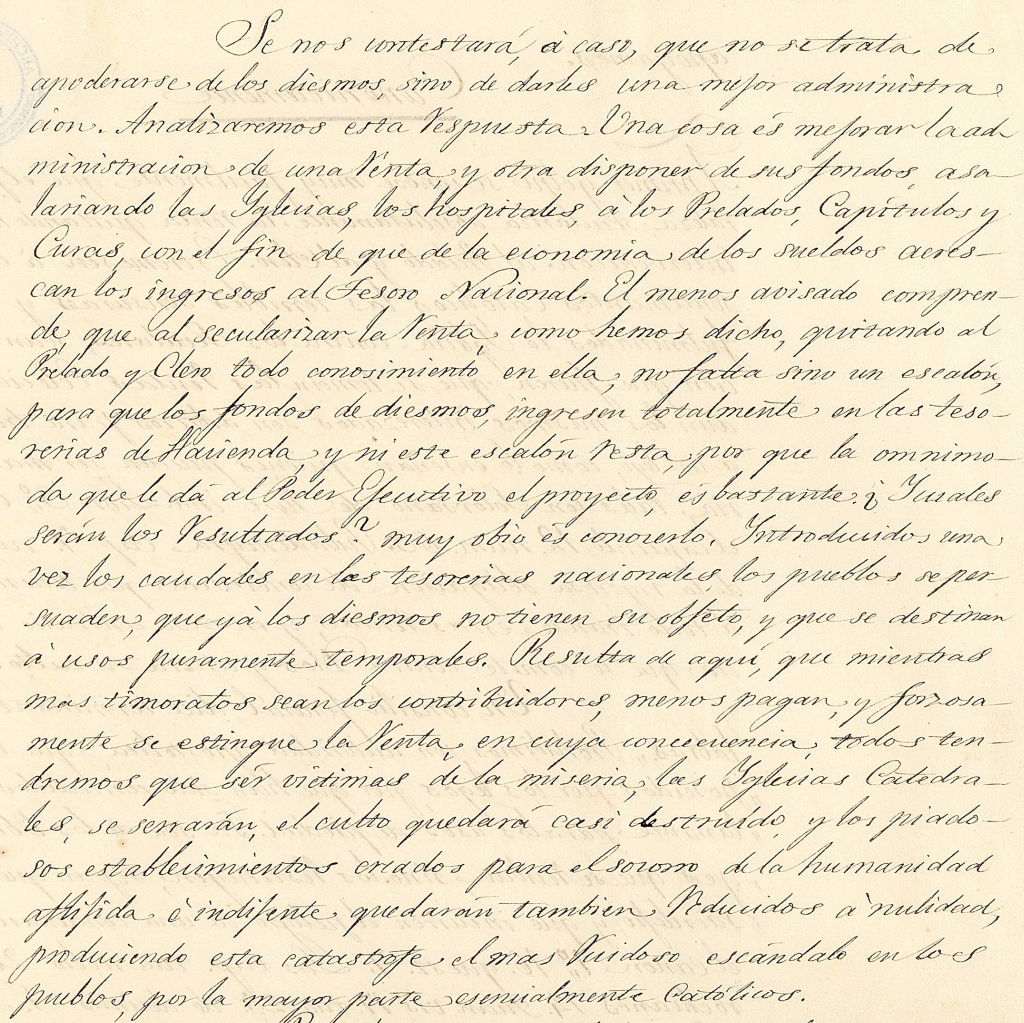 Se nos contestará, á caso, que no se trata de
apoderarse de los diesmos, sino de darles una mejor administra
cion. Analizaremos esta Respuesta. Una cosa és mejorar la ad
ministracion de una Renta, y otra disponer de sus fondos, asa
lariando las Yglecias, los hospitales, á los Prelados, Capítulos y
Curas, con el fin de que de la economia de los sueldos acres-
can los ingresos al Tesoro Nacional. El menos avisado compren-
de, que al secularizar la Renta, como hemos dicho, quitando al
Prelado y Clero todo conosimiento en ella, no falta sino un escalón,
para que los fondos de diesmos, ingresen totalmente en las teso-
rerias de Hacienda, y ni este escalón Resta, por que la omnimo-
da que le dá al Poder Ejecutivo el proyecto, és bastante. ¿Y cuales
serán los Resultados? muy obio és conocerlo. Introducidos una
vez los caudales en las tesorerias nacionales, los pueblos se per
suaden, que yá los diesmos no tienen su objeto, y que se destinan
á usos puramente temporales. Resulta de aquí, que mientras
mas timoratos sean los contribuidores, menos pagan, y forzosa-
mente se estingue la Renta, en cuya concecuencia, todos ten-
dremos que sér victimas de la miseria, las Yglecias Catedra-
les, se serrarán, el culto quedará casi destruído, y los piado-
sos establecimientos creados para el socorro de la humanidad
aflijida é indijente quedarán tambien Reducidos á nulidad,
produciendo esta catastrofe el mas Ruidoso escándalo en los
pueblos, por la mayor parte esencialmente Católicos.